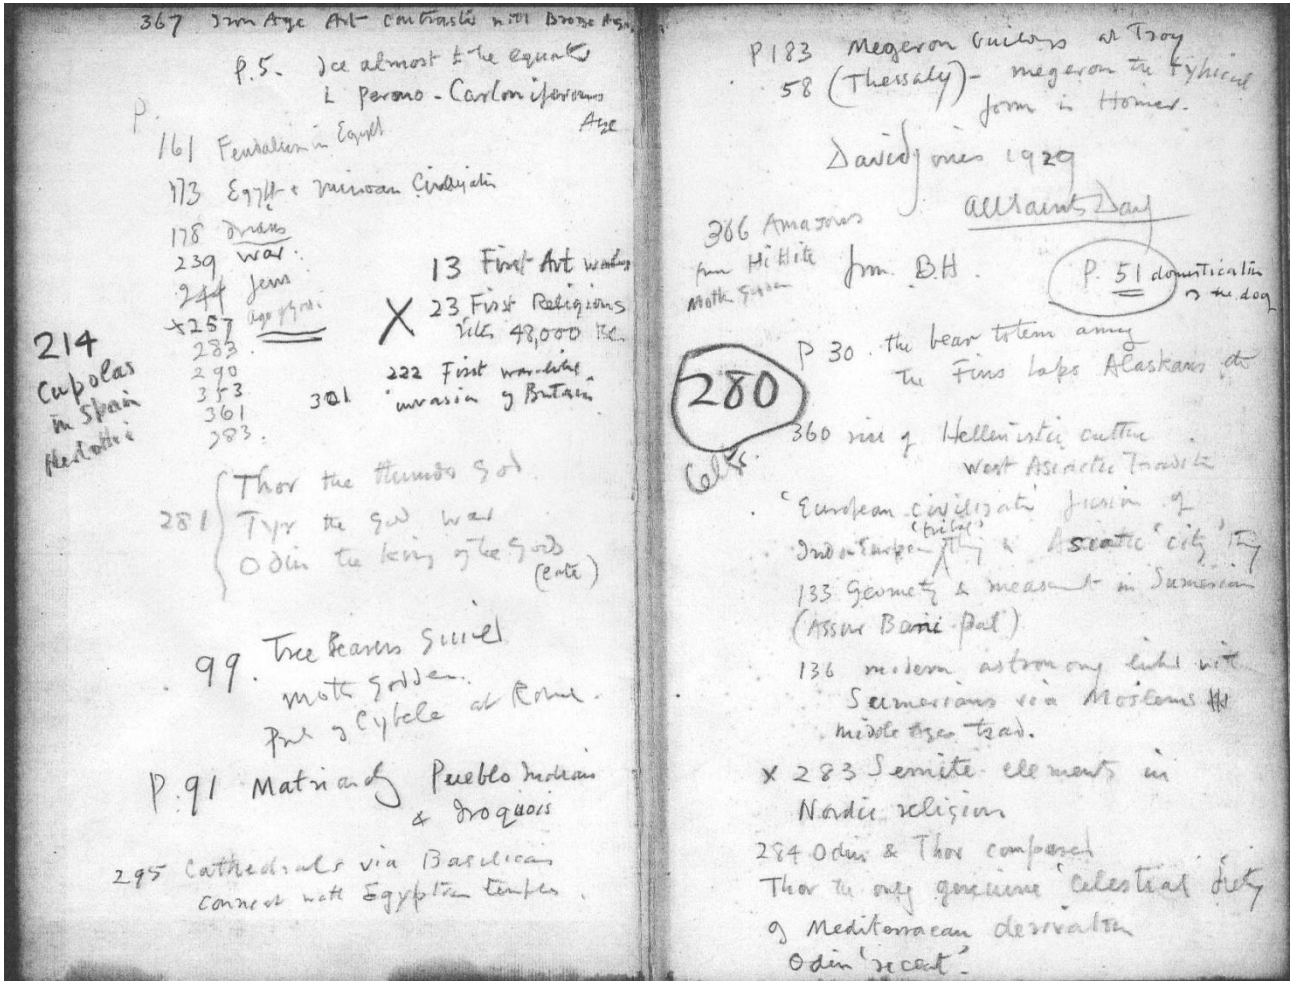 367 Iron Age Art contrasts with Bronze Age.
P.5. Ice almost to the equator
Permo-Carboniferous
Age
P.
161 Feudalism in Egypt
173 Egypt & Minoan Civilization
178
239 war.
244 Jews
x257
283.
290
353
361
383.
301
214
Cupolas
in Spain
13 First Art
X 23 First Religious
rites 48,000 BC.
222 First war-like
invasion of Britain
281 Thor the thunder god
Tyr the god war
Odin the king of the gods
99. Tree Bearers Guild
Moth Godden.
of Cybele at Rome.
P.91 Matriarchy Pueblo Indians
& Iroquois
295 Cathedrals via Basilicas
connect with Egyptian temples.
P183 Megeron builders at Troy
58 (Thessaly) - megeron the typical
form in Homer.
David Jones 1929
All Saints Day
from B.H.
366 Amazons
from Hittite
Moth Godden
P. 51 domestication
of the dog
P 30. the bear totem among
the Fins Laps Alaskans etc
280
Celts.
360 rise of Hellenistic culture
West Asiatic Tradit
'European civilizati' fusion of
Indo Europen 'tribal' thing & Asiatic 'city' thing
133 Geometry & measurement in Sumerian
(Assur Bani Pal)
136 modern astronomy linked with
Sumerians via Moslems
middle ages trad.
x 283 Semite elements in
Nordic religion
284 Odin & Thor compared
Thor the only genuine 'Celestial' deity
of Mediterraean derivation
Odin 'recent'.